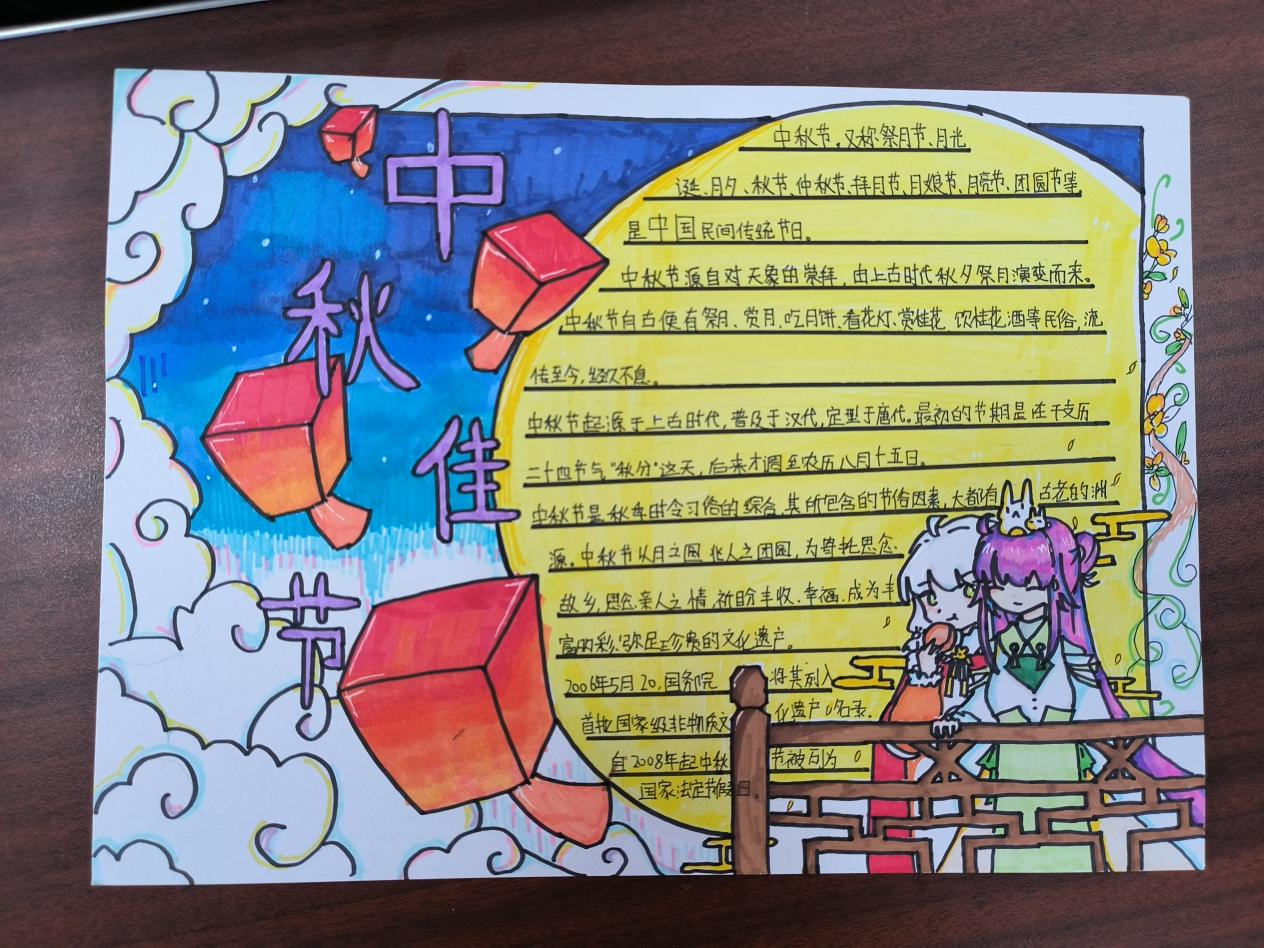 中秋佳节
中秋节，又称祭月节、月光
诞、月夕、秋节、仲秋节、拜月节、月娘节、月亮节、团圆节等
是中国民间传统节日。
中秋节源自对天象的崇拜，由上古时代秋夕祭月演变而来。
中秋节自古便有祭月、赏月、吃月饼、看花灯、赏桂花、饮桂花酒等民俗，流
传至今，经久不息。
中秋节起源于上古时代，普及于汉代，定型于唐代。最初的节期是在干支历
二十四节气“秋分”这天，后来才调至农历八月十五日。
中秋节是秋季时令习俗的综合，其所包含的节俗因素，大都有古老的渊
源。中秋节以月之圆兆人之团圆，为寄托思念
故乡，思念亲人之情，祈盼丰收、幸福，成为丰
富多彩、弥足珍贵的文化遗产。
2006年5月20，国务院将其列入
首批国家级非物质文化遗产名录。
自2008年起中秋节被列为
国家法定节假日。